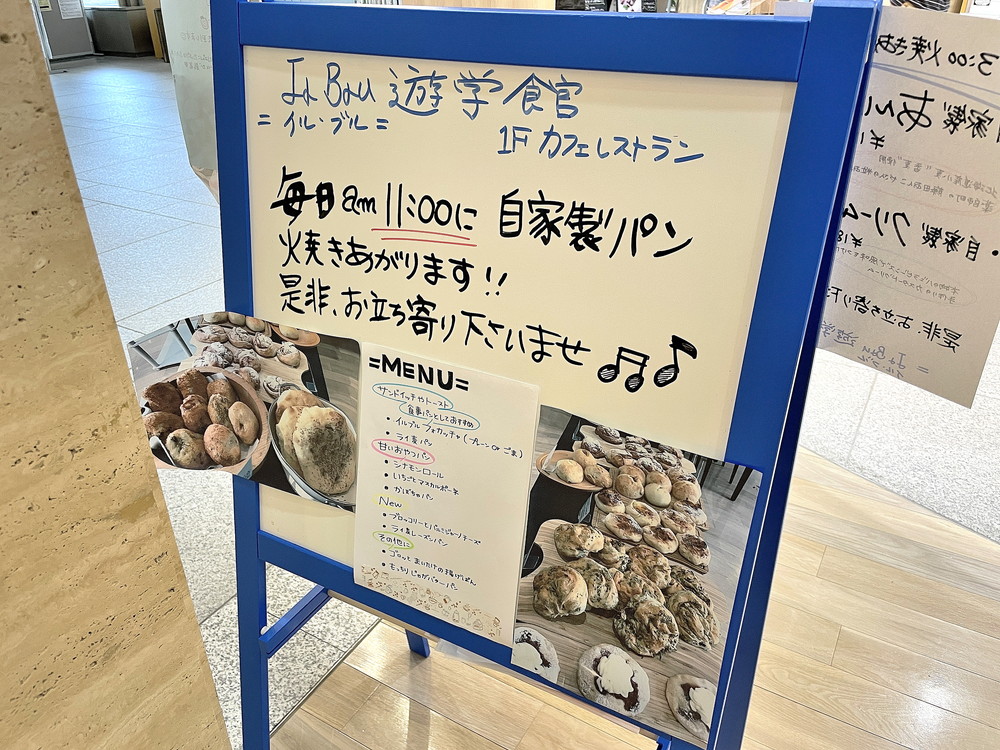 Il Blu 遊学食官
= イル・ブル =
1F カフェレストラン
毎日am 11:00に 自家製パン
焼きあがります!!
是非、お立ち寄り下さいませ
=MENU=
サンドイッチやトースト
食事パンとしておすすめ
• イルブルフォカッチャ(プレーン or ごま)
• ライ麦パン
甘いおやつパン
• シナモンロール
• いちごとマスカルポーネ
• かぼちゃパン
New
• ブロッコリーとパルミジャーノチーズ
• ライ麦レーズンパン
その他に
• ゴロッとまいたけの揚げぱん
• もっちりじゃがバターパン
3:00 焼きあ
家製 あん
¥1
自家製 クリーム
¥18
是非、お立ち寄り下